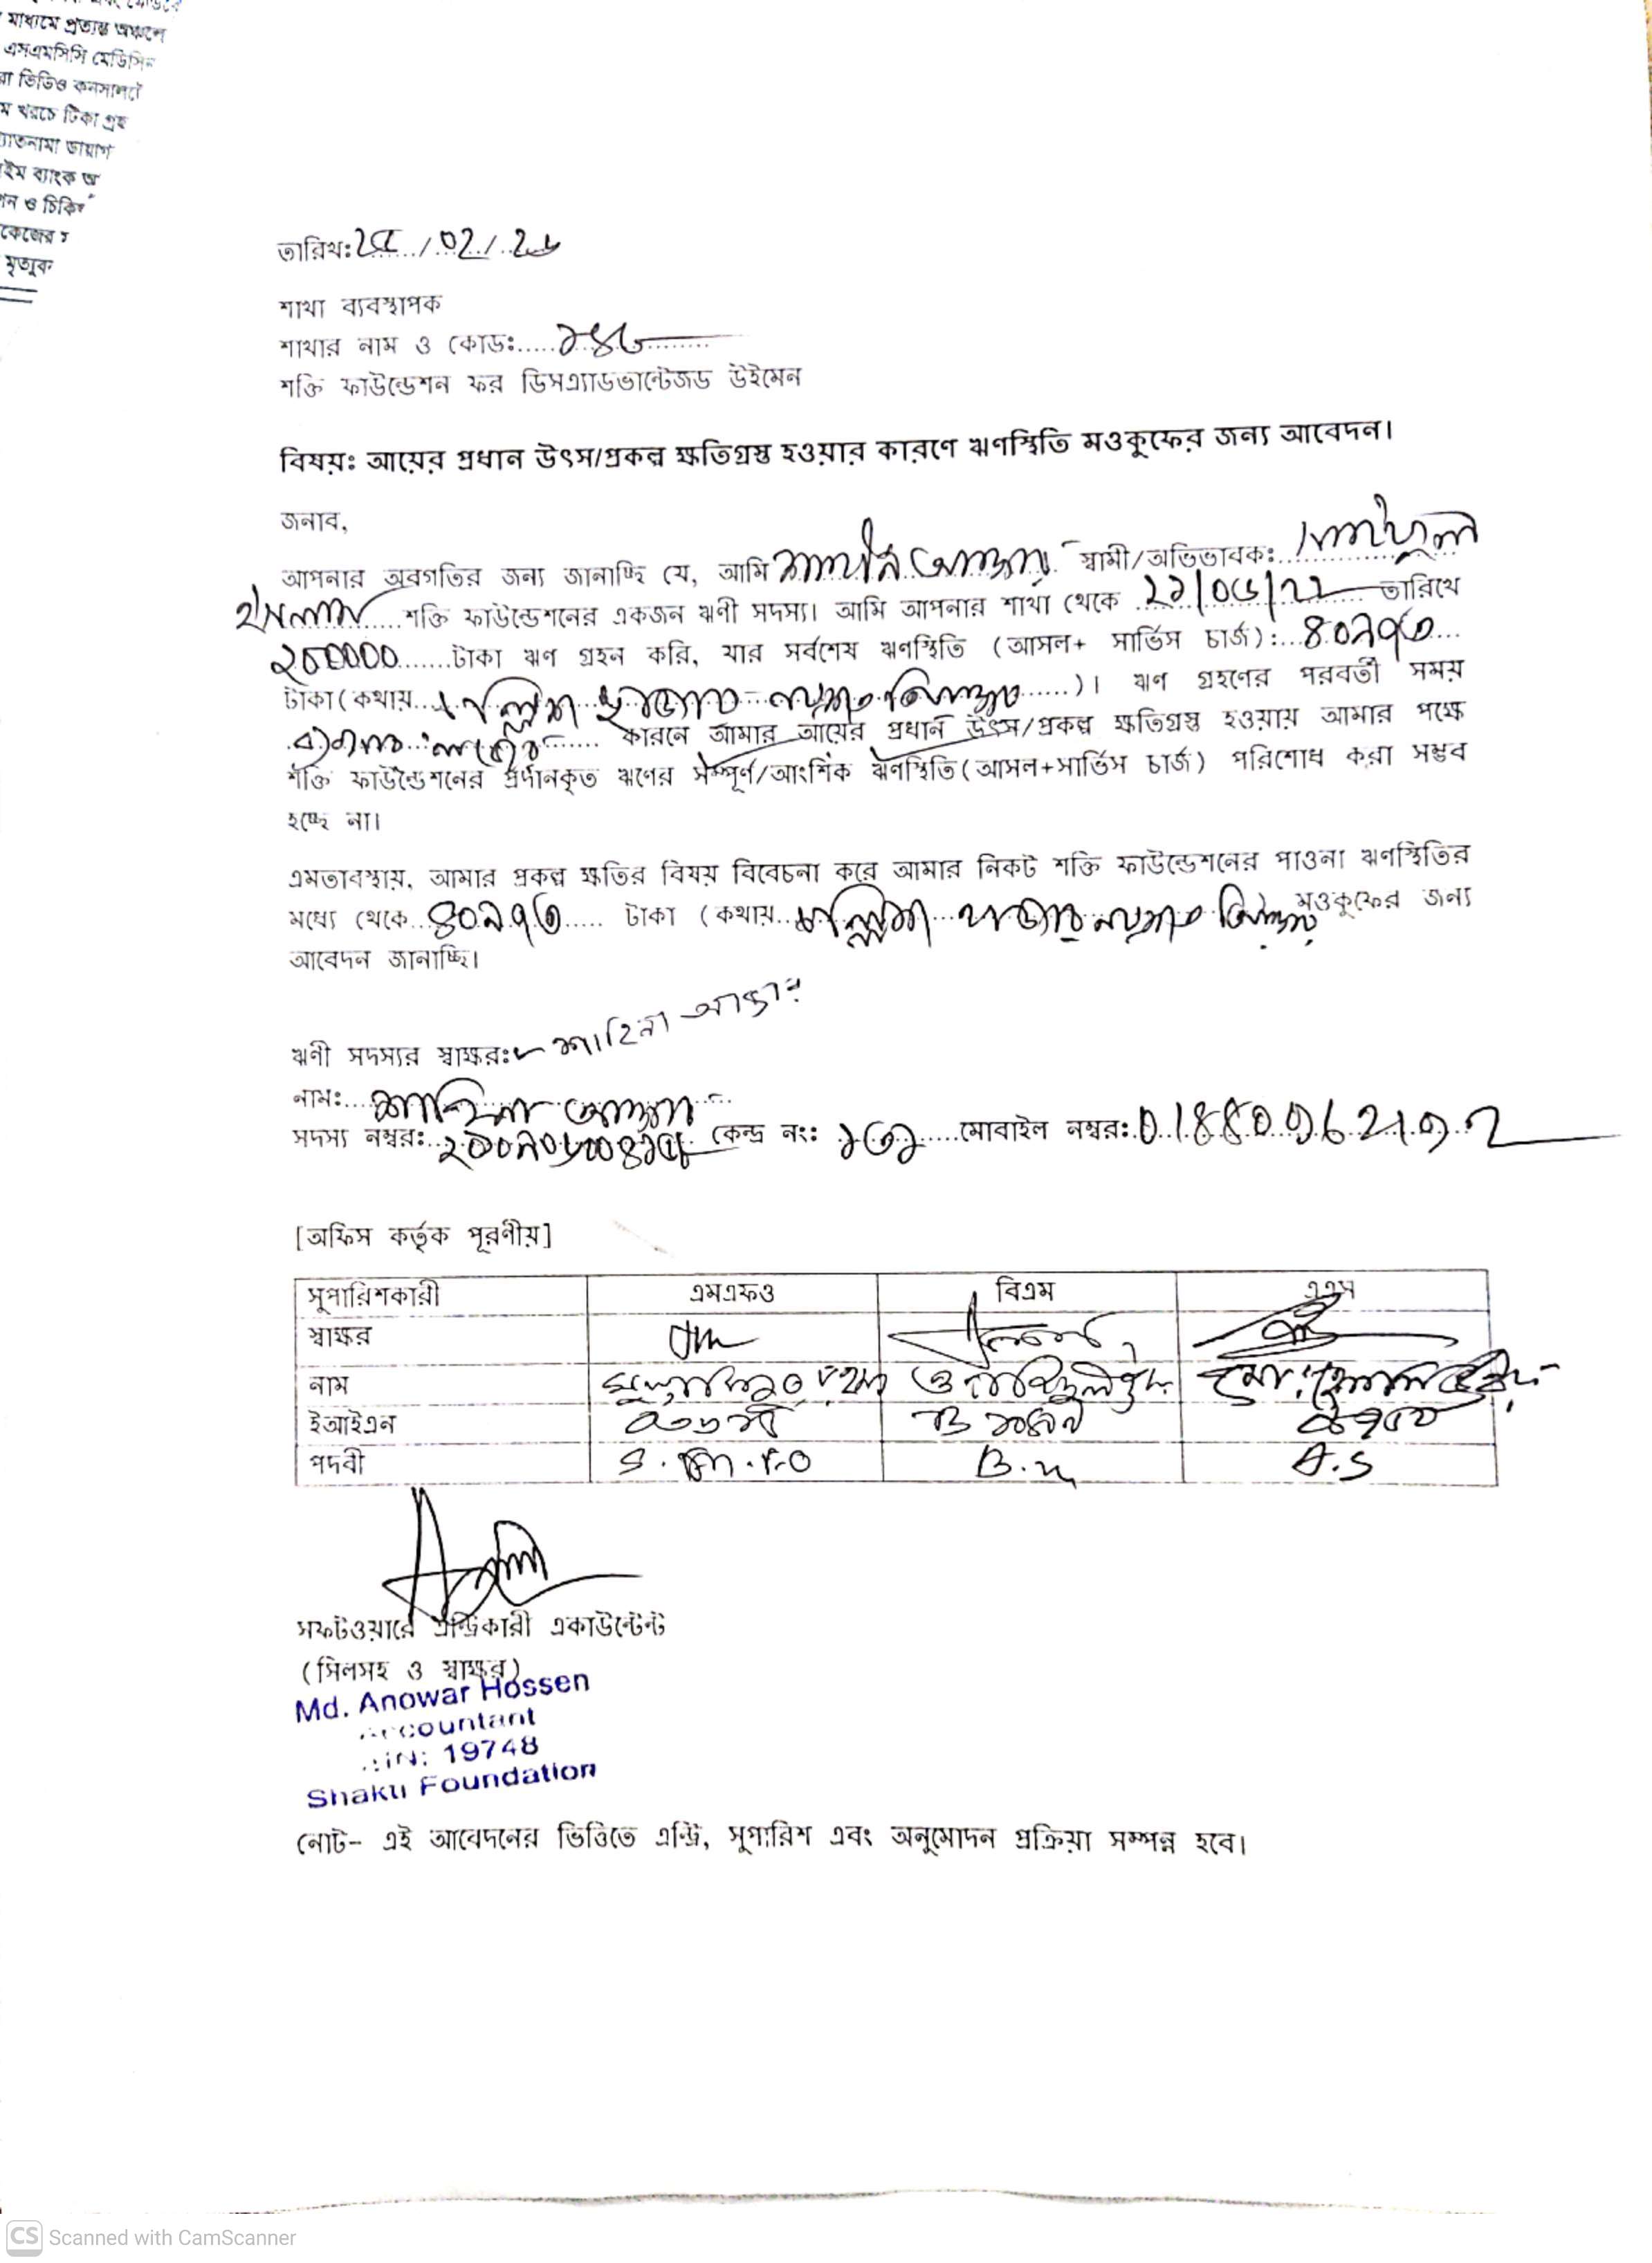 মাধ্যমে প্রত্যন্ত অঞ্চলে
এসএমসিসি মেডিসিন
রা ভিডিও কনসালটে
ম খরচে টিকা গ্রহ
্যাতনামা ডায়াগ
াইম ব্যাংক অ
শন ও চিকিৎ
কেজের
মৃত্যুক
তারিখ: ২৫/০২/২৬
শাখা ব্যবস্থাপক
শাখার নাম ও কোড:..... ১৪৬
শক্তি ফাউন্ডেশন ফর ডিসএ্যাডভান্টেজড উইমেন
বিষয়ঃ আয়ের প্রধান উৎস/প্রকল্প ক্ষতিগ্রস্ত হওয়ার কারণে ঋণস্থিতি মওকুফের জন্য আবেদন।
জনাব,
আপনার অবগতির জন্য জানাচ্ছি যে, আমি শাহিনা আক্তার স্বামী/অভিভাবক:
ইসলাম শক্তি ফাউন্ডেশনের একজন ঋণী সদস্য। আমি আপনার শাখা থেকে তারিখে
টাকা ঋণ গ্রহন করি, যার সর্বশেষ ঋণস্থিতি (আসল+ সার্ভিস চার্জ): ৪০৯৭৩
টাকা(কথায় চল্লিশ হাজার নয়শত তিয়াত্তর)। ঋণ গ্রহণের পরবর্তী সময়
কারনে আমার আয়ের প্রধান উৎস/প্রকল্প ক্ষতিগ্রস্ত হওয়ায় আমার পক্ষে
শক্তি ফাউন্ডেশনের প্রদানকৃত ঋণের সম্পূর্ণ/আংশিক ঋণস্থিতি(আসল+সার্ভিস চার্জ) পরিশোধ করা সম্ভব
হচ্ছে না।
এমতাবস্থায়, আমার প্রকল্প ক্ষতির বিষয় বিবেচনা করে আমার নিকট শক্তি ফাউন্ডেশনের পাওনা ঋণস্থিতির
মধ্যে থেকে ৪০৯৭৩ টাকা (কথায় চল্লিশ হাজার নয়শত তিয়াত্তর মওকুফের জন্য
আবেদন জানাচ্ছি।
ঋণী সদস্যর স্বাক্ষর: শাহিনা আক্তার
নাম: শাহিনা আক্তার
সদস্য নম্বর: কেন্দ্র নং: ১৩১ মোবাইল নম্বর:
[অফিস কর্তৃক পূরণীয়]
সুপারিশকারী এমএফও বিএম এএস
স্বাক্ষর
নাম
ইআইএন
পদবী S.M.F.O B.M A.S
সফটওয়ারে এন্ট্রিকারী একাউন্টেন্ট
(সিলসহ ও স্বাক্ষর)
Md. Anowar Hossen
Accountant
EIN: 19748
Shakti Foundation
নোট- এই আবেদনের ভিত্তিতে এন্ট্রি, সুপারিশ এবং অনুমোদন প্রক্রিয়া সম্পন্ন হবে।
CS Scanned with CamScanner